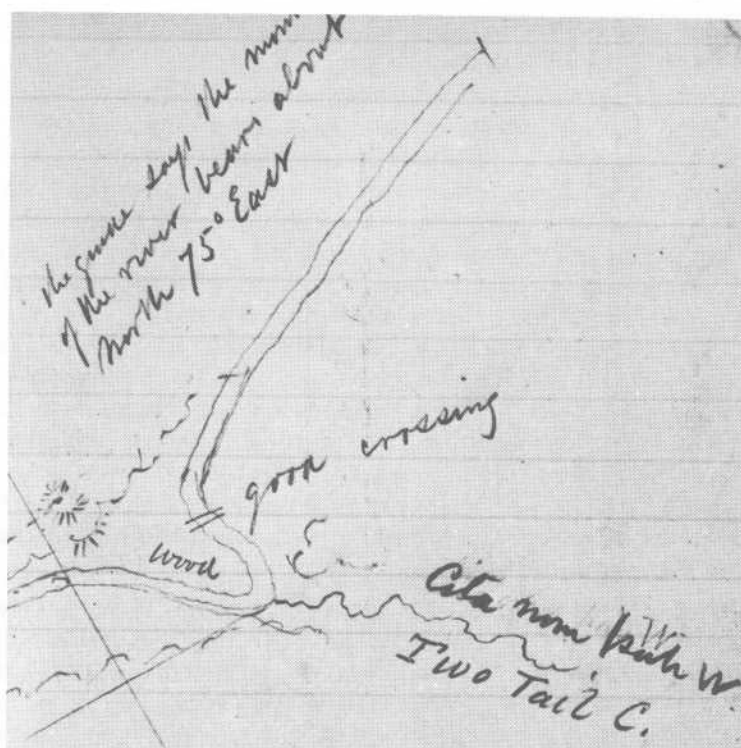 the guide says the mou
of the river bears about
North 75° East
good crossing
wood
Cita nom
W
Two Tail C.